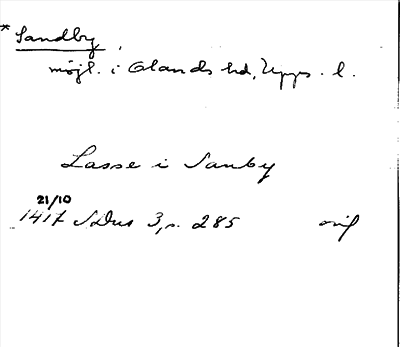 * Sandby,
möjl. i Olands hd, Upps. l.
Lasse i Sanby
21/10
1417 SDns 3, s. 285 orig